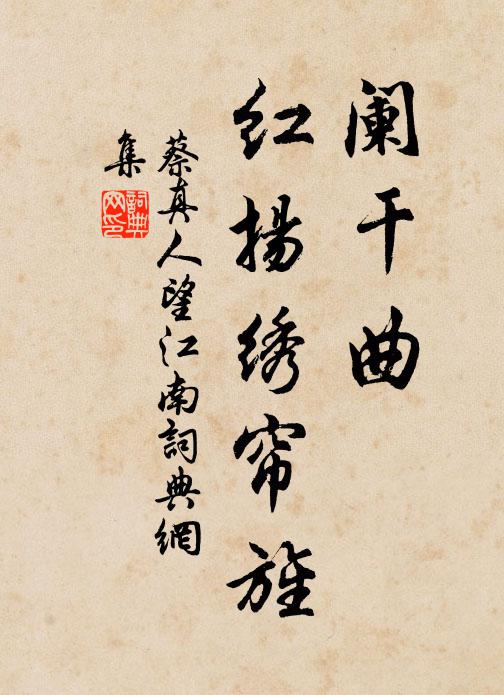 阑干曲
红揚绣帘旌
蔡真人望江南詞典網
集
詞典
网印